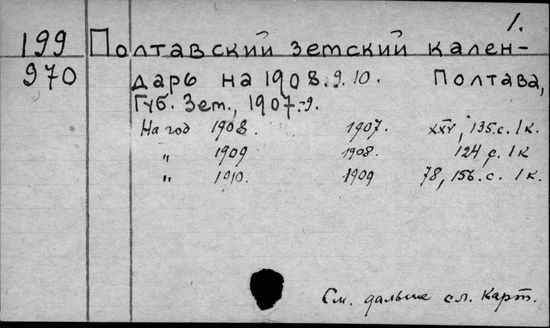 1.
199 Полтавский земский кален-
970 дарь на 1908.9.10. Полтава,
Губ. Зем., 1907-9.
На год 1908. 1907. XXV, 135.с. 1 к.
" 1909 1908. 124 с. 1 к
" 1910. 1909 78, 156.с. 1 к.
См. дальше сл. карт.